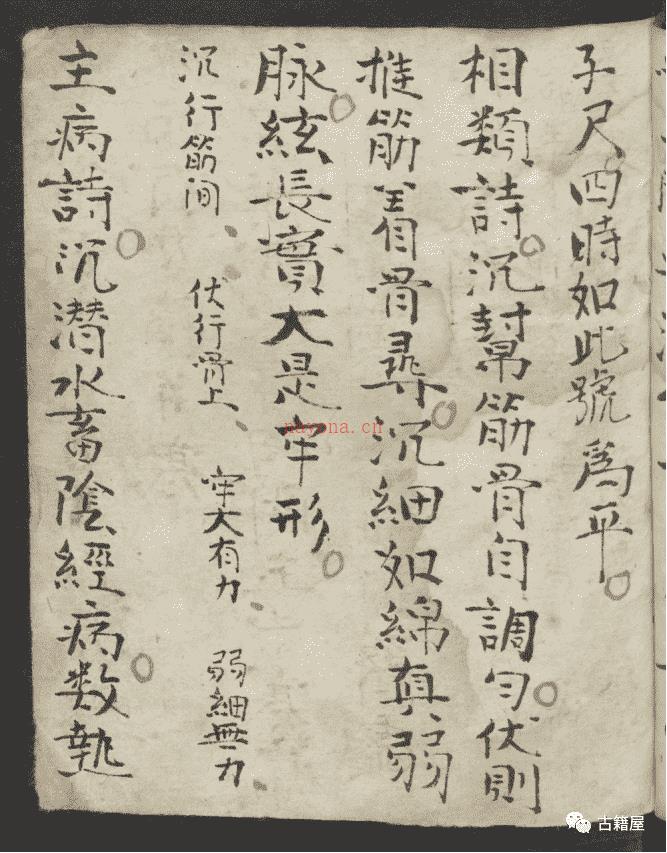 子尺四時如此號為平
相類詩沉幫筋骨自調勻伏則
推筋着骨尋沉細如綿真弱
脉絃長實大是牢形
沉行筋间、伏行骨上、牢大有力、弱細無力、
主病詩沉潜水畜陰經病数热
nayona.cn
古籍屋